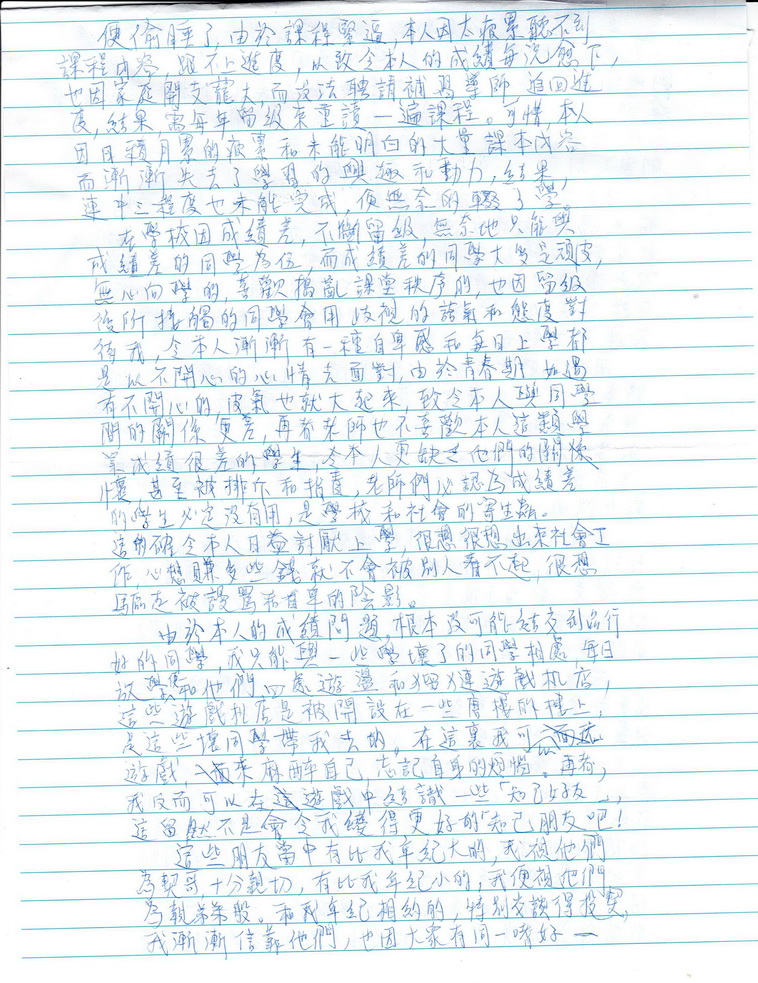 便偷睡了,由於課程緊逼,本人因太疲累聽不到
課程內容,跟不上進度,以致令本人的成績每況愈下,
也因家庭開支龐大,而沒法聘請補習導師追回進
度,結果,需每年留級來重讀一遍課程。可惜,本人
因日積月累的疲累和未能明白的大量課本內容
而漸漸失去了學習的興趣和動力,結果,
連中三程度也未能完成,便無奈的輟了學。
在學校因成績差,不斷留級,無奈地只能與
成績差的同學為伍,而成績差的同學大多是頑皮,
無心向學的,喜歡搗亂課堂秩序的,也因留級
後所接觸的同學會用歧視的語氣和態度對
待我,令本人漸漸有一種自卑感和每日上學都
是以不開心的心情去面對,由於青春期如遇
有不開心的,皮氣也就大起來,致令本人與同學
間的關係更差,再者老師也不喜歡本人這類學
業成績很差的學生,令本人更缺乏他們的關
懷,甚至被排斥和指責,老師們必認為成績差
的學生必定沒有用,是學校和社會的寄生蟲。
這的確令本人日益討厭上學,很想很想出來社會工
作,心想賺多些錢就不會被別人看不起,很想
驅走被謾罵和自卑的陰影。
由於本人的成績問題,根本沒可能結交到品行
好的同學,我只能與一些學壞了的同學相處,每日
放學便和他們四處遊盪和流連遊戲机店,
這些遊戲机店是被開設在一些舊樓的樓上,
是這些壞同學帶我去的。在這裏我可以
遊戲,來麻醉自己,忘記自身的煩惱。再者,
我反而可以在遊戲中結識一些「知己好友」,
這當然不是會令我變得更好的「知己朋友吧!
這些朋友當中有比我年紀大的,我視他們
為契哥,十分親切,有比我年紀小的,我便視他們
為親弟弟般。和我年紀相約的,特別交談得投契,
我漸漸信靠他們,也因大家有同一嗜好一